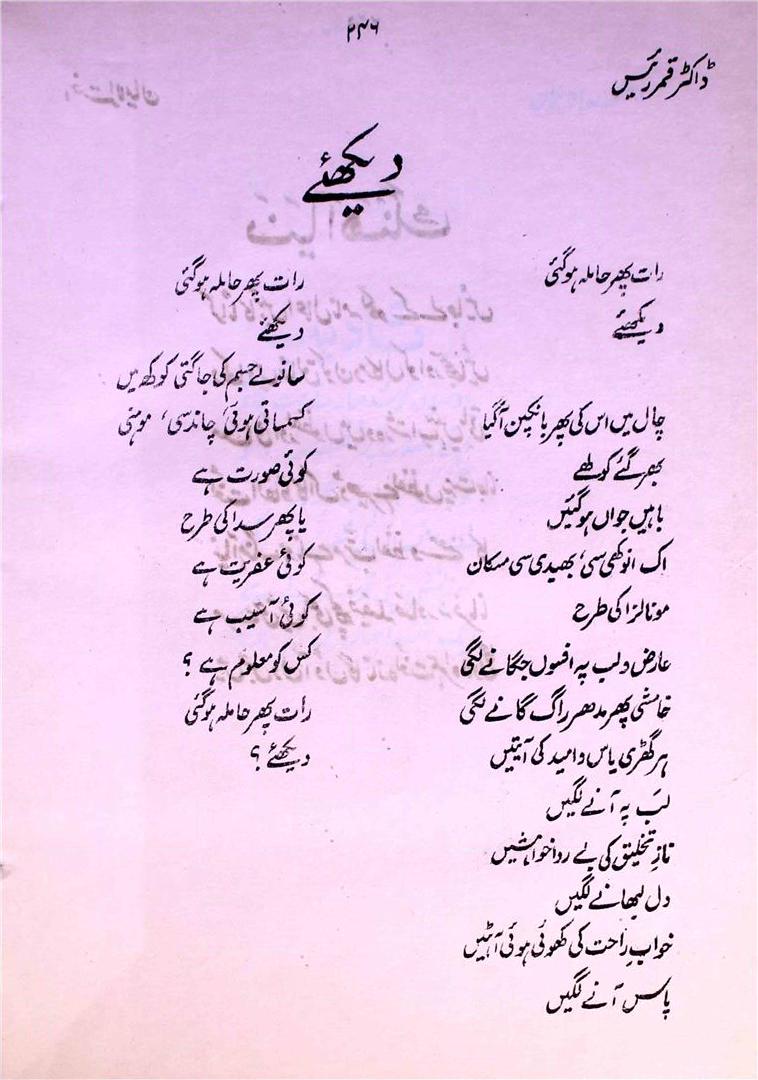 ۲۴۶
ڈاکٹر قمر رئیس
دیکھئے
رات پھر حاملہ ہوگئی
دیکھئے
چال میں اس کی پھر بانکپن آگیا
بھر گئے کولھے
باہیں جواں ہوگئیں
اک انوکھی سی، بھیدی سی مسکان
مونالزا کی طرح
عارض و لب پہ افسوں جگانے لگی
خامشی پھر مدھر راگ گانے لگی
ہر گھڑی یاس و امید کی آیتیں
لب پہ آنے لگیں
نازِ تخلیق کی بے ردا خواہشیں
دل لبھانے لگیں
خوابِ راحت کی کھوئی ہوئی آہٹیں
پاس آنے لگیں
رات پھر حاملہ ہوگئی
دیکھئے
سانولے جسم کی جاگتی کوکھ میں
کسمساتی ہوئی، چاند سی، موہنی
کوئی صورت ہے
یا پھر سدا کی طرح
کوئی عفریت ہے
کوئی آسیب ہے
کس کو معلوم ہے ؟
رات پھر حاملہ ہوگئی
دیکھئے ؟